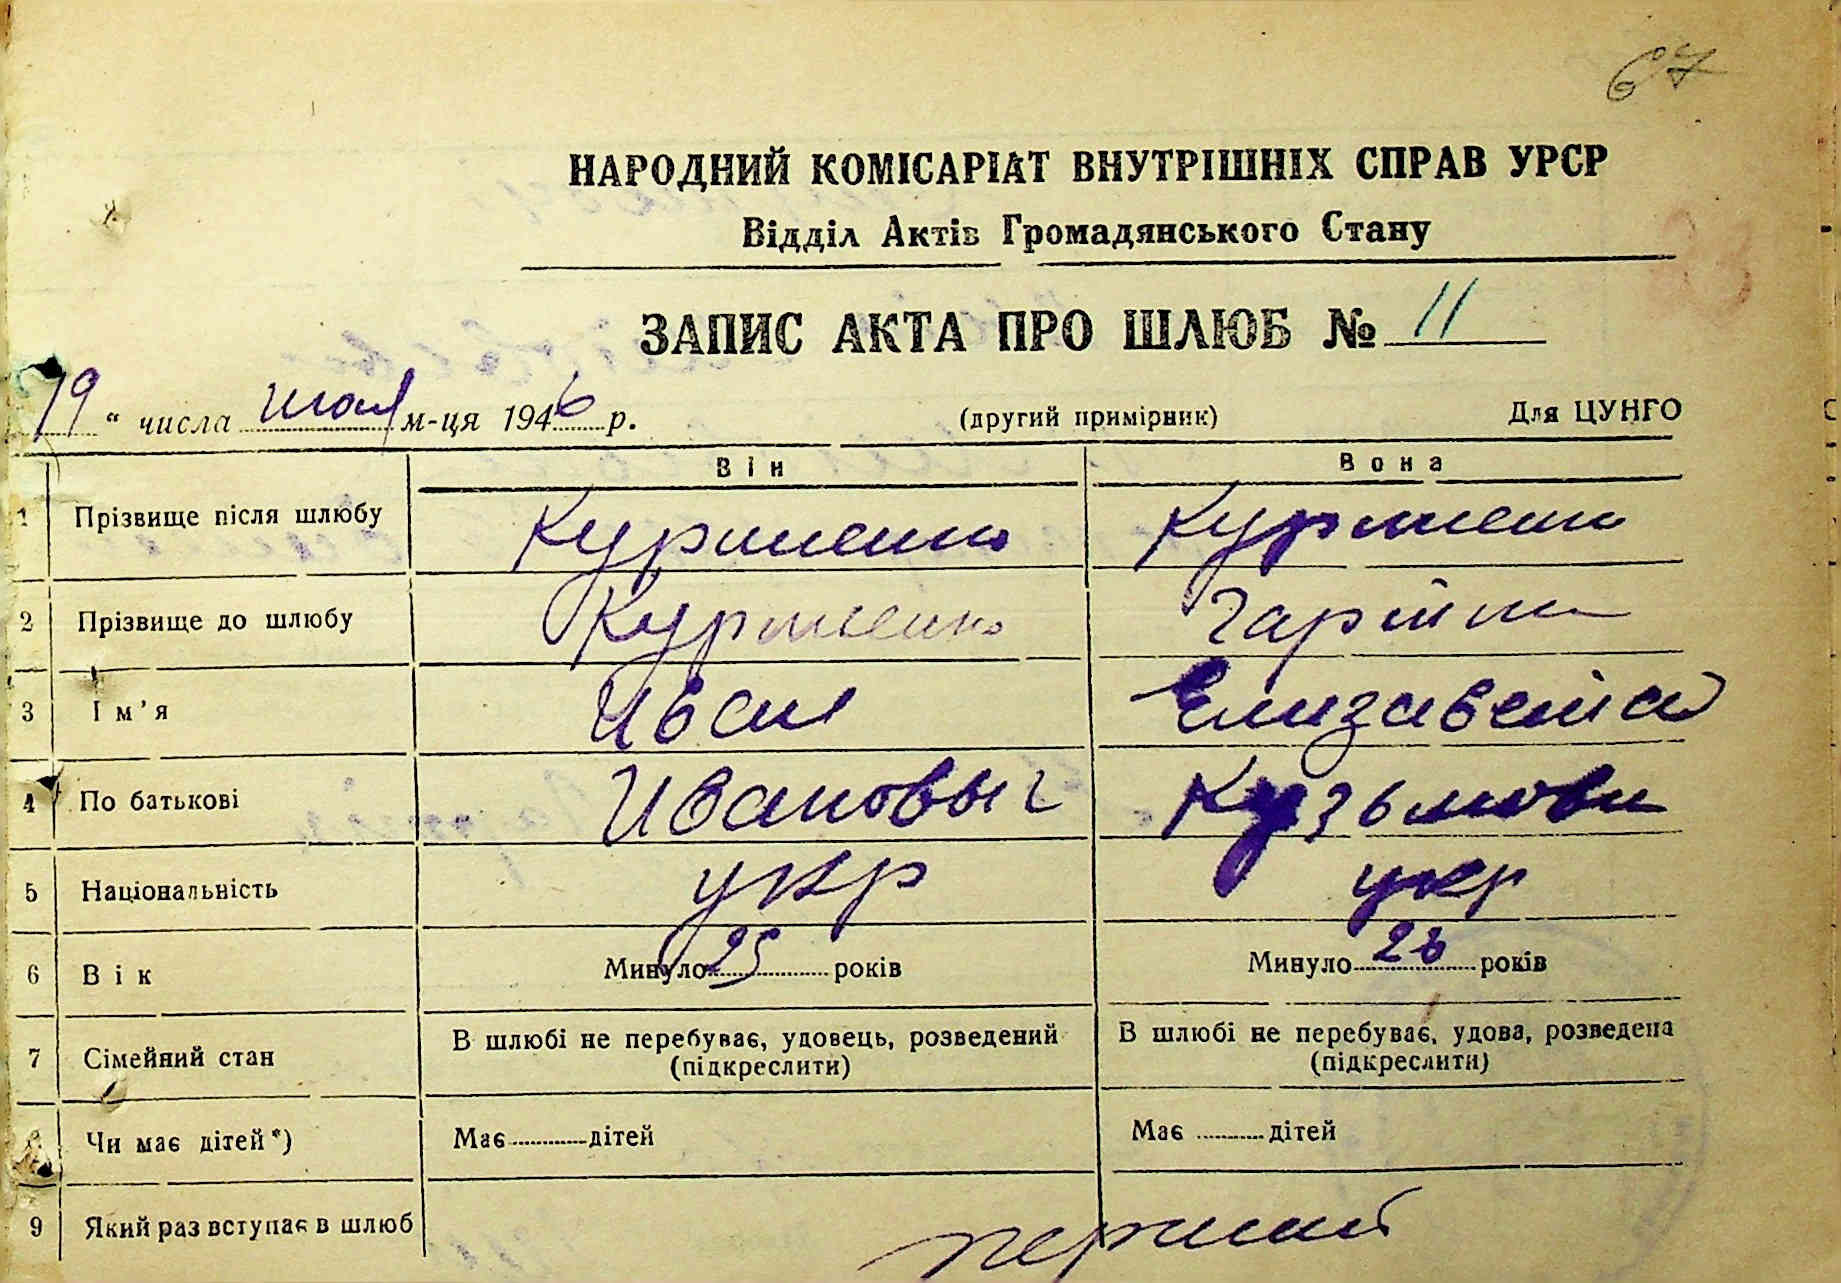 67
НАРОДНИЙ КОМІСАРІАТ ВНУТРІШНІХ СПРАВ УРСР
Відділ Актів Громадянського Стану
ЗАПИС АКТА ПРО ШЛЮБ № 11
19 " числа мая м-ця 1946 р. (другий примірник) Для ЦУНГО
Він Вона
1 Прізвище після шлюбу Курменко Курменко
2 Прізвище до шлюбу Курменко
3 Ім'я Иван Елизавета
4 По батькові Ивановыч Кузьмовн
5 Національність укр укр
6 Вік Минуло 25 років Минуло 26 років
7 Сімейний стан В шлюбі не перебуває, удовець, розведений (підкреслити) В шлюбі не перебуває, удова, розведена (підкреслити)
8 Чи має дітей*) Має дітей Має дітей
9 Який раз вступає в шлюб перший